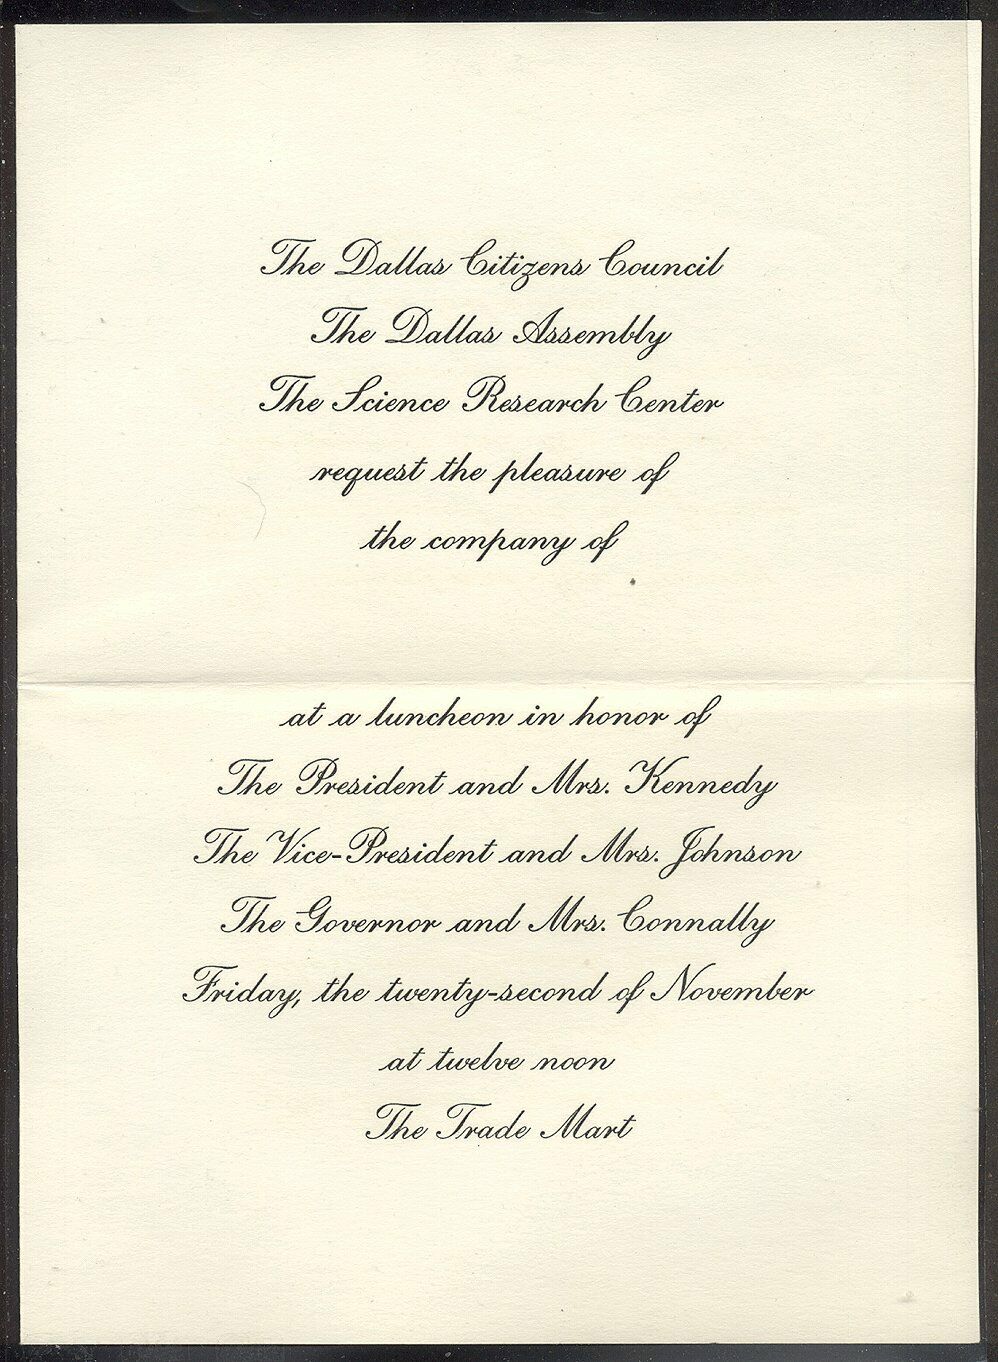 The Dallas Citizens Council
The Dallas Assembly
The Science Research Center
request the pleasure of
the company of
at a luncheon in honor of
The President and Mrs. Kennedy
The Vice-President and Mrs. Johnson
The Governor and Mrs. Connally
Friday, the twenty-second of November
at twelve noon
The Trade Mart